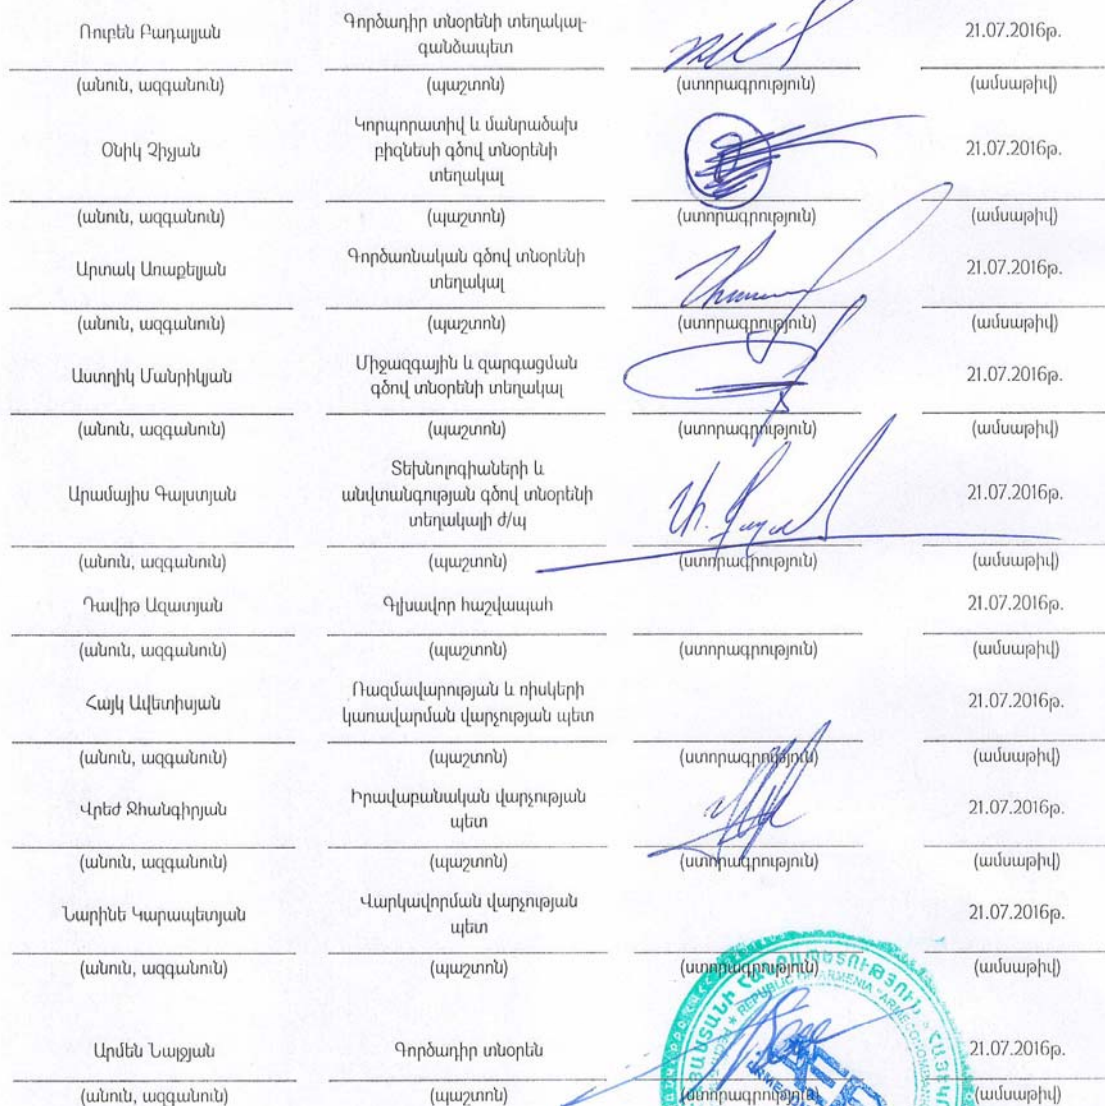 Ռուբեն Բադալյան
Գործադիր տնօրենի տեղակալ-
գանձապետ
21.07.2016թ.
(անուն, ազգանուն) (պաշտոն) (ստորագրություն) (ամսաթիվ)
Օնիկ Չիչյան
Կորպորատիվ և մանրածախ
բիզնեսի գծով տնօրենի
տեղակալ
21.07.2016թ.
(անուն, ազգանուն) (պաշտոն) (ստորագրություն) (ամսաթիվ)
Արտակ Առաքելյան
Գործառնական գծով տնօրենի
տեղակալ
21.07.2016թ.
(անուն, ազգանուն) (պաշտոն) (ստորագրություն) (ամսաթիվ)
Աստղիկ Մանրիկյան
Միջազգային և զարգացման
գծով տնօրենի տեղակալ
21.07.2016թ.
(անուն, ազգանուն) (պաշտոն) (ստորագրություն) (ամսաթիվ)
Արամայիս Գալստյան
Տեխնոլոգիաների և
անվտանգության գծով տնօրենի
տեղակալի ժ/պ
21.07.2016թ.
(անուն, ազգանուն) (պաշտոն) (ստորագրություն) (ամսաթիվ)
Դավիթ Ազատյան
Գլխավոր հաշվապահ
21.07.2016թ.
(անուն, ազգանուն) (պաշտոն) (ստորագրություն) (ամսաթիվ)
Հայկ Ավետիսյան
Ռազմավարության և ռիսկերի
կառավարման վարչության պետ
21.07.2016թ.
(անուն, ազգանուն) (պաշտոն) (ստորագրություն) (ամսաթիվ)
Վրեժ Ջհանգիրյան
Իրավաբանական վարչության
պետ
21.07.2016թ.
(անուն, ազգանուն) (պաշտոն) (ստորագրություն) (ամսաթիվ)
Նարինե Կարապետյան
Վարկավորման վարչության
պետ
21.07.2016թ.
(անուն, ազգանուն) (պաշտոն) (ստորագրություն) (ամսաթիվ)
REPUBLIC OF ARMENIA
Արմեն Նալջյան
Գործադիր տնօրեն
21.07.2016թ.
(անուն, ազգանուն) (պաշտոն) (ստորագրություն) (ամսաթիվ)